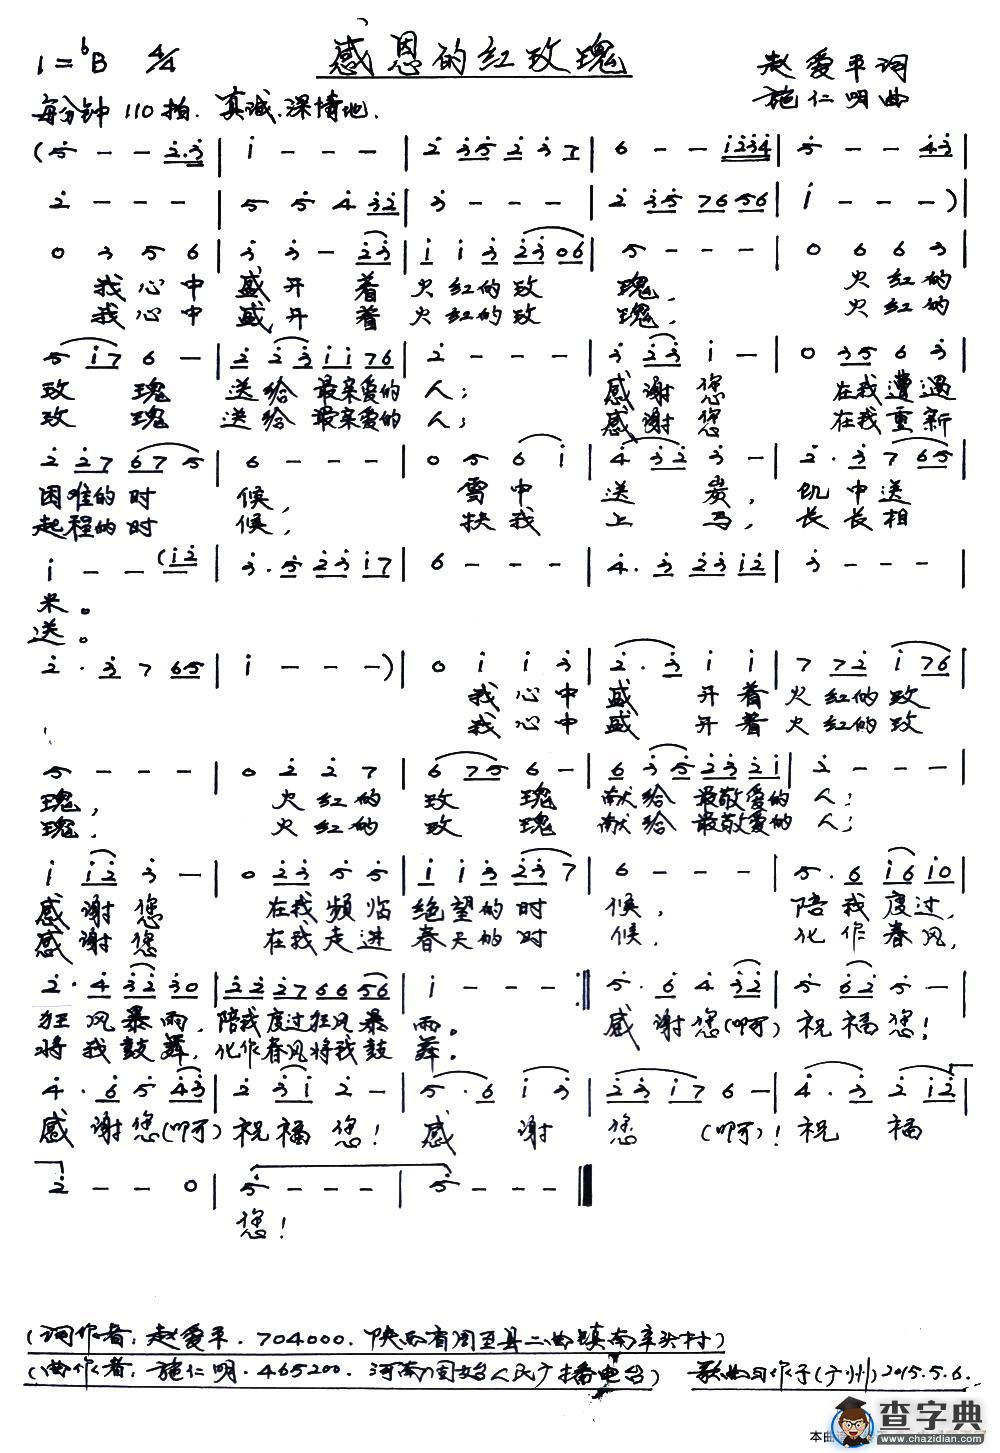 感恩的红玫瑰
1=♭B 4/4
赵爱平词
每分钟110拍. 真诚.深情地.
施仁明曲
(5 - - 2.3 | 1 - - - | 2 35 23 7 | 6 - - 1234 | 5 - - 43 |
2 - - - | 5 5 4 32 | 3 - - - | 2 35 76 56 | 1 - - -) |
0 3 5 6 | 3 3 - 23 | 1 1 3 23 06 | 5 - - - | 0 6 6 3 |
我心中 盛开着 火红的玫 瑰, 火红的
我心中 盛开着 火红的玫 瑰, 火红的
5 17 6 - | 2 23 11 76 | 2 - - - | 3 23 1 - | 0 35 6 3 |
玫瑰 送给最亲爱的 人; 感谢您 在我遭遇
玫瑰 送给最亲爱的 人; 感谢您 在我重新
2 27 67 5 | 6 - - - | 0 5 6 1 | 4 32 3 - | 2. 3 7 65 |
困难的时 候, 雪中 送炭, 饥中送
起程的时 候, 扶我 上马, 长长相
1 - - (12 | 3.5 23 17 | 6 - - - | 4.3 23 12 | 3 - - - |
米。
送。
2. 3 7 65 | 1 - - -) | 0 1 1 3 | 2. 3 1 1 | 7 72 1 76 |
我心中 盛开着 火红的玫
我心中 盛开着 火红的玫
5 - - - | 0 2 2 7 | 6 75 6 - | 6 35 23 21 | 2 - - - |
瑰, 火红的 玫瑰 献给最敬爱的 人;
瑰, 火红的 玫瑰 献给最敬爱的 人;
1 12 3 - | 0 23 5 5 | 1 1 3 23 7 | 6 - - - | 5. 6 16 10 |
感谢您 在我频临 绝望的时 候, 陪我度过,
感谢您 在我走进 春天的时 候, 化作春风,
2. 4 32 30 | 22 27 66 56 | 1 - - - :‖ 5. 6 4 32 | 5 62 5 - |
狂风暴雨, 陪我度过狂风暴 雨。 感谢您(啊) 祝福您!
将我鼓舞, 化作春风将我鼓 舞。
4. 6 5 43 | 2 31 2 - | 5. 6 1 3 | 23 17 6 - | 4. 3 2 12 |
感谢您(啊) 祝福您! 感谢 您 (啊)! 祝福
2 - - 0 | 5 - - - | 5 - - - ‖
您!
(词作者:赵爱平.704000.陕西省周至县二曲镇南辛头村)
(曲作者:施仁明.465200.河南固始人民广播电台) 歌曲习作于(广州)2015.5.6.
查字典
www.chazidian.com
本曲